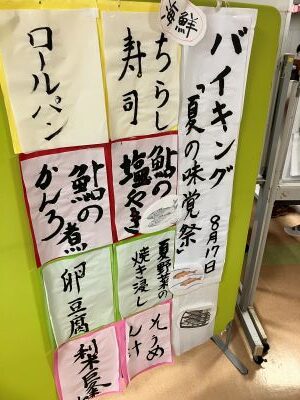 海鮮
バイキング
「夏の味覚祭」
8月17日
ちらし
寿司
鮎の
塩やき
夏野菜の
焼き浸し
そうめ
ん汁
ロールパン
鮎の煮
かんろ
卵豆腐